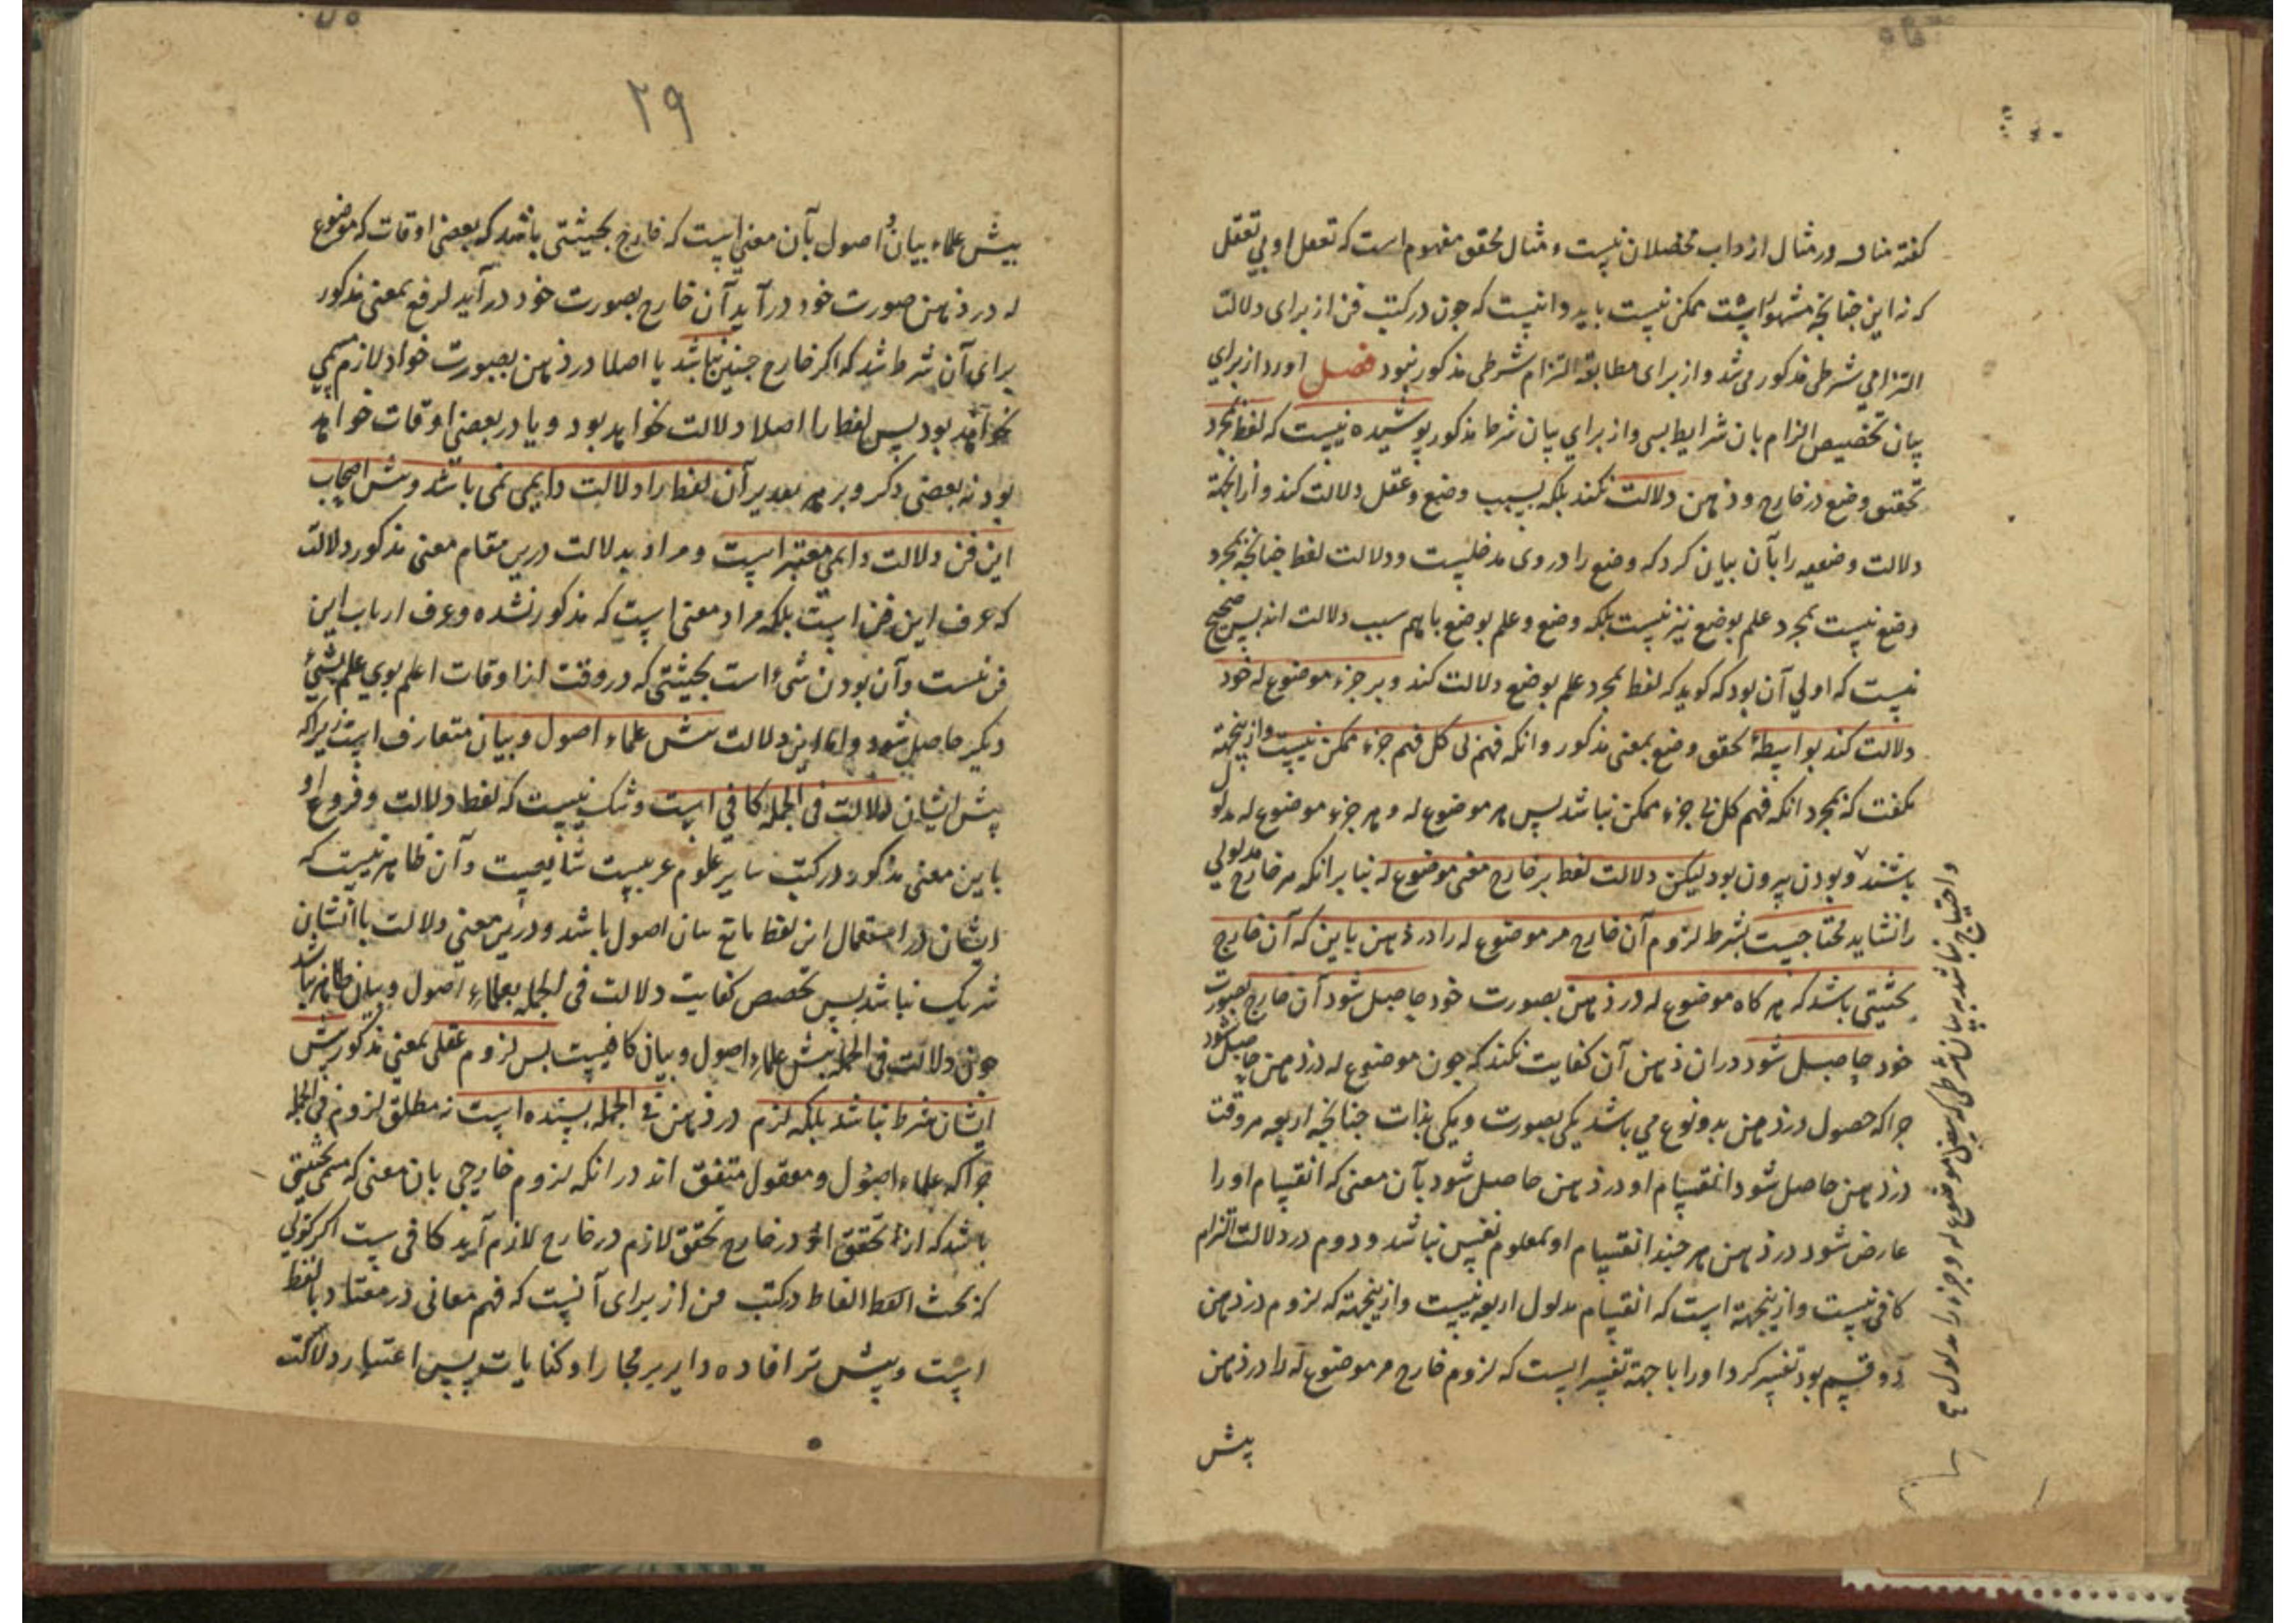 کفته مناف در مثال از داب محصلان نیست و مثال محقق مفهوم است که تعقل او بی تعقل
که نه این چنانچه مشهور است ممکن نیست باید دانست که چون در کتب فن از برای دلالت
التزامی شرطی مذکور می شد و از برای مطابقه التزام شرطی مذکور نبود فصل اورد از برای
بیان تخصیص الزام بان شرایط بسی و از برای بیان شرط مذکور پوشیده نیست که لفظ بمجرد
تحقق وضع در خارج و ذهن دلالت نکند بلکه بسبب وضع و عقل دلالت کند و از انجهة
دلالت وضعیه را بآن بیان کرد که وضع را در وی مدخلیست و دلالت لفظ چنانچه بمجرد
وضع نیست بمجرد علم بوضع نیز نیست بلکه وضع و علم بوضع باهم سبب دلالت اند پس صحیح
نیست که اولی آن بود که کوید که لفظ بمجرد علم بوضع دلالت کند و بر جزء موضوع له خود
دلالت کند بواسطهٔ تحقق وضع بمعنی مذکور و انکه فهم کل فهم جزء ممکن نیست و ازینجهة
نکفت که بمجرد انکه فهم کل بی جزء ممکن نباشد پس هر موضوع له و هر جزء موضوع له مدلول
باشند و بودن بیرون بود لیکن دلالت لفظ بر خارج معنی موضوع له بنا بر انکه هر خارج مدلولی
را نشاید محتاجست بشرط لزوم آن خارج مر موضوع له را در ذهن باین که آن خارج
بحیثیتی باشد که هر کاه موضوع له در ذهن بصورت خود حاصل شود آن خارج بصورت
خود حاصل شود در ان ذهن آن کفایت نکند که چون موضوع له در ذهن حاصل شود
چرا که حصول در ذهن بدو نوع می باشد یکی بصورت و یکی بذات چنانچه اربعه هر وقت
در ذهن حاصل شود انقسام او در ذهن حاصل شود بآن معنی که انقسام او را
عارض شود در ذهن هر چند انقسام او معلوم نفس نباشد و دوم در دلالت التزام
کافی نیست و ازینجهة است که انقسام مدلول اربعه نیست و ازینجهة که لزوم در ذهن
دو قسم بود تفسیر کرد او را با جهة تفسیر است که لزوم خارج مر موضوع له را در ذهن
پیش
و احتیاج نباشد به بیان شرطی که بعضی موضوع له و جزء را مدلول
۲۹
پیش علماء بیان و اصول بآن معنی است که خارج بحیثیتی باشد که بعضی اوقات که موضوع
له در ذهن صورت خود در آید آن خارج بصورت خود در آید لرفع بمعنی مذکور
برای آن شرط شد که اکر خارج چنین نباشد یا اصلا در ذهن بصورت خواد لازم مسمی
نخواهد بود پس لفظ را اصلا دلالت نخواهد بود و یا در بعضی اوقات خواهد
بود نه بعضی دکر و بر هر تقدیر آن لفظ را دلالت دایمی نمی باشد و پیش اصحاب
این فن دلالت دایمی معتبر است و مراد بدلالت درین مقام معنی مذکور دلالت
که عرف این فن است بلکه مراد معنی است که مذکور نشده و عرف ارباب این
فن نیست و آن بودن شیٔ است بحیثیتی که در وقت از اوقات اعلم بوی علم بشیٔ
دیکر حاصل شود و اما این دلالت پیش علماء اصول و بیان متعارف است زیرا که
پیش ایشان دلالت فی الجمله کافی است و شک نیست که لفظ دلالت و فروع او
باین معنی مذکور در کتب سایر علوم عربیت شایعست و آن ظاهر نیست که
ایشان در استعمال این لفظ مانع بیان اصول باشد و درین معنی دلالت باایشان
شریک نباشد پس تخصیص کفایت دلالت فی الجمله بعلماء اصول و بیان ظاهر نباشد
چون دلالت فی الجمله پیش علماء اصول و بیان کافیست پس لزوم عقلی بمعنی مذکور پیش
ایشان شرط نباشد بلکه لزم در ذهن فی الجمله بسنده است نه مطلق لزوم فی الجمله
چرا که علماء اصول و معقول متفق اند در انکه لزوم خارجی بان معنی که مسمی بحیثیتی
باشد که از تحقق او در خارج تحقق لازم در خارج لازم آید کافی نیست اکر کوئی
که بحث الفاظ در کتب فن از برای آنست که فهم معانی در معتاد بالفظ
است و پیش تر افاده دایر بر مجاز او کنایات پس اعتبار دلالت